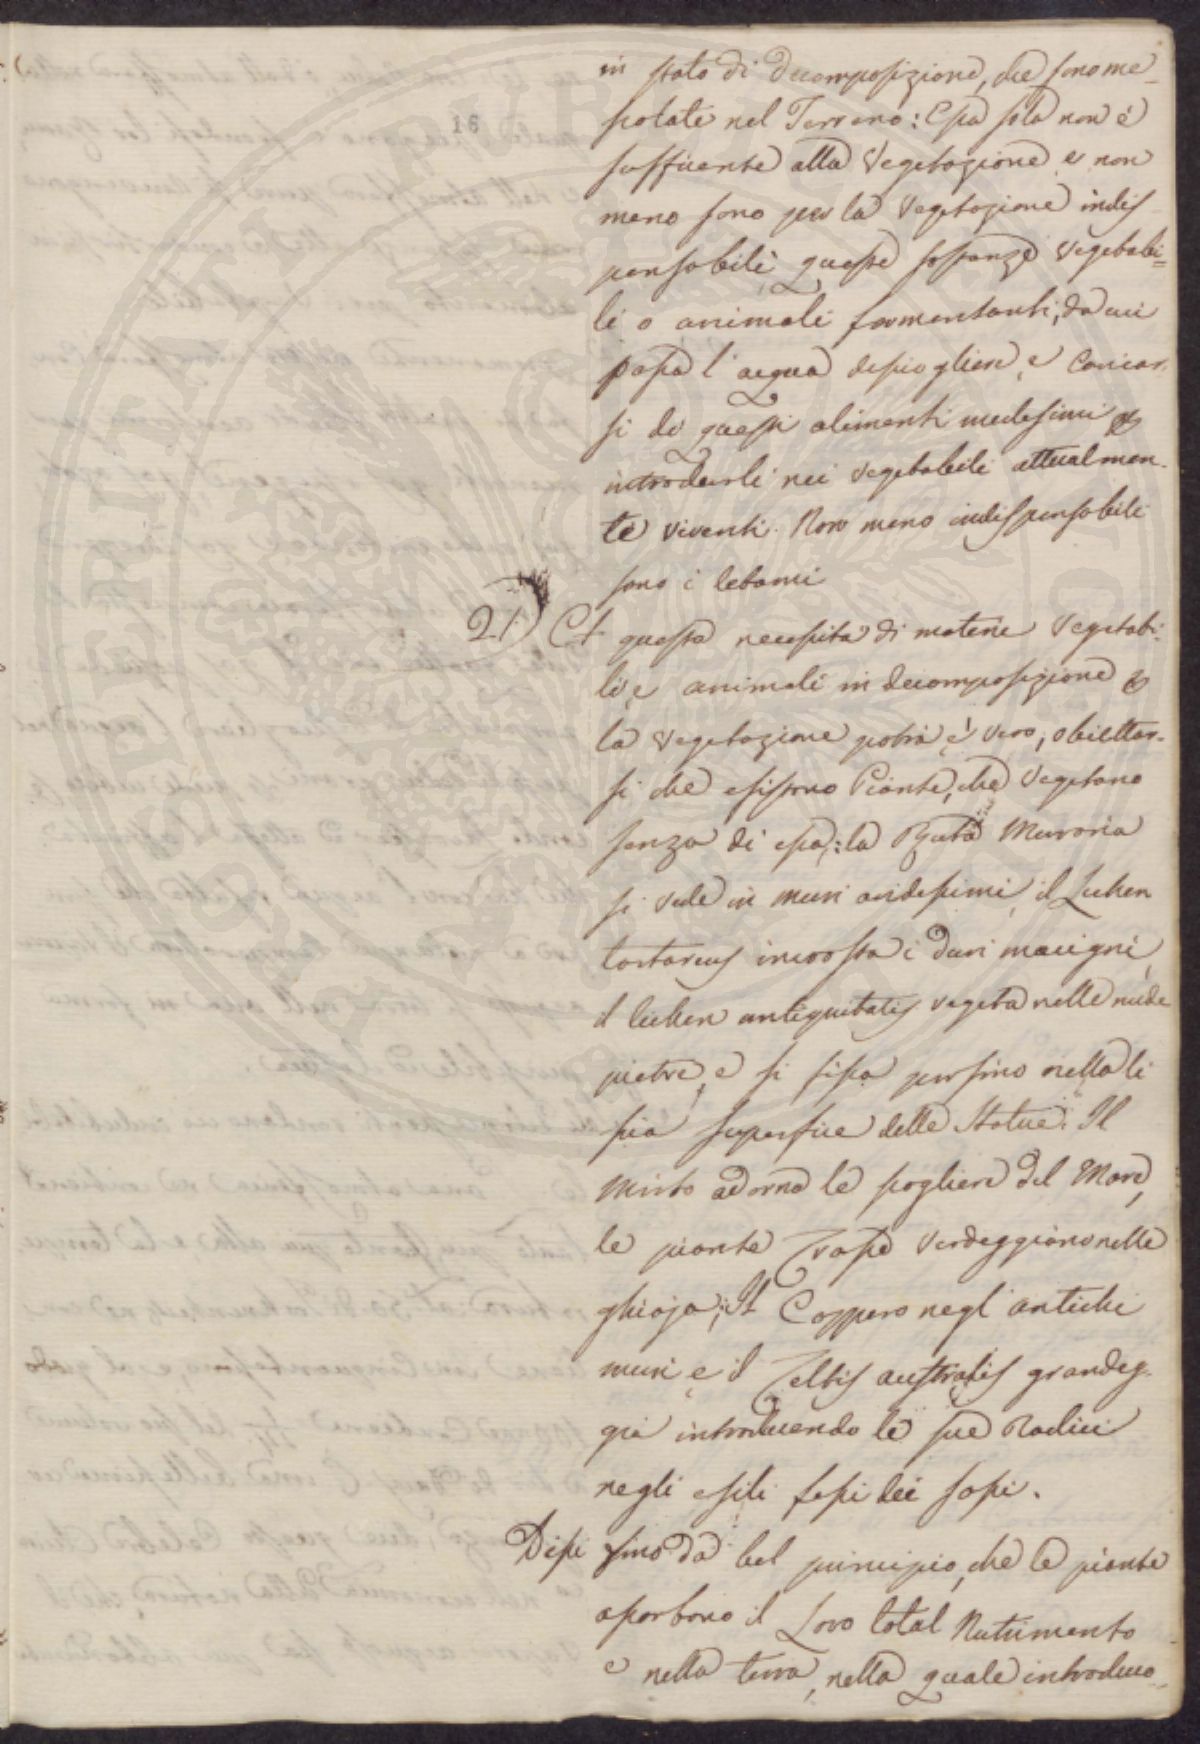 16
in stato di decomposizione, che sono me-
scolate nel Terreno: Essa sola non è
sufficente alla Vegetazione e non
meno sono per la Vegetazione indis-
pensabili queste sostanze Vegetabi=
li o animali fermentanti, da cui
possa l'acqua disciogliere e Caricar-
si di questi alimenti medesimi e
introdurli nei vegetabili attualmen-
te viventi. Non meno indispensabili
sono i letami
21) A questa necessità di materie Vegetabi-
li e animali in decomposizione
la Vegetazione potrà è vero, obiettar-
si che esistono Piante, che Vegetano
senza di essa: la Ruta Muraria
si vede in muri aridissimi, il Lichen
tartareus incrosta i duri macigni,
il lichen antiquitatis vegeta nelle nude
pietre, e si fissa persino nella li
scia superficie delle Statue. Il
Mirto adorna le scogliere del Mare,
le piante Grasse verdeggiano nelle
ghiaja; Il Cappero negl'antichi
muri e il Zeltis australis grandeg-
gia introducendo le sue Radici
negli esili fessi dei sassi.
Dissi fino da bel principio, che le piante
assorbono il Loro total Nutrimento
e nella terra, nella quale introduco-